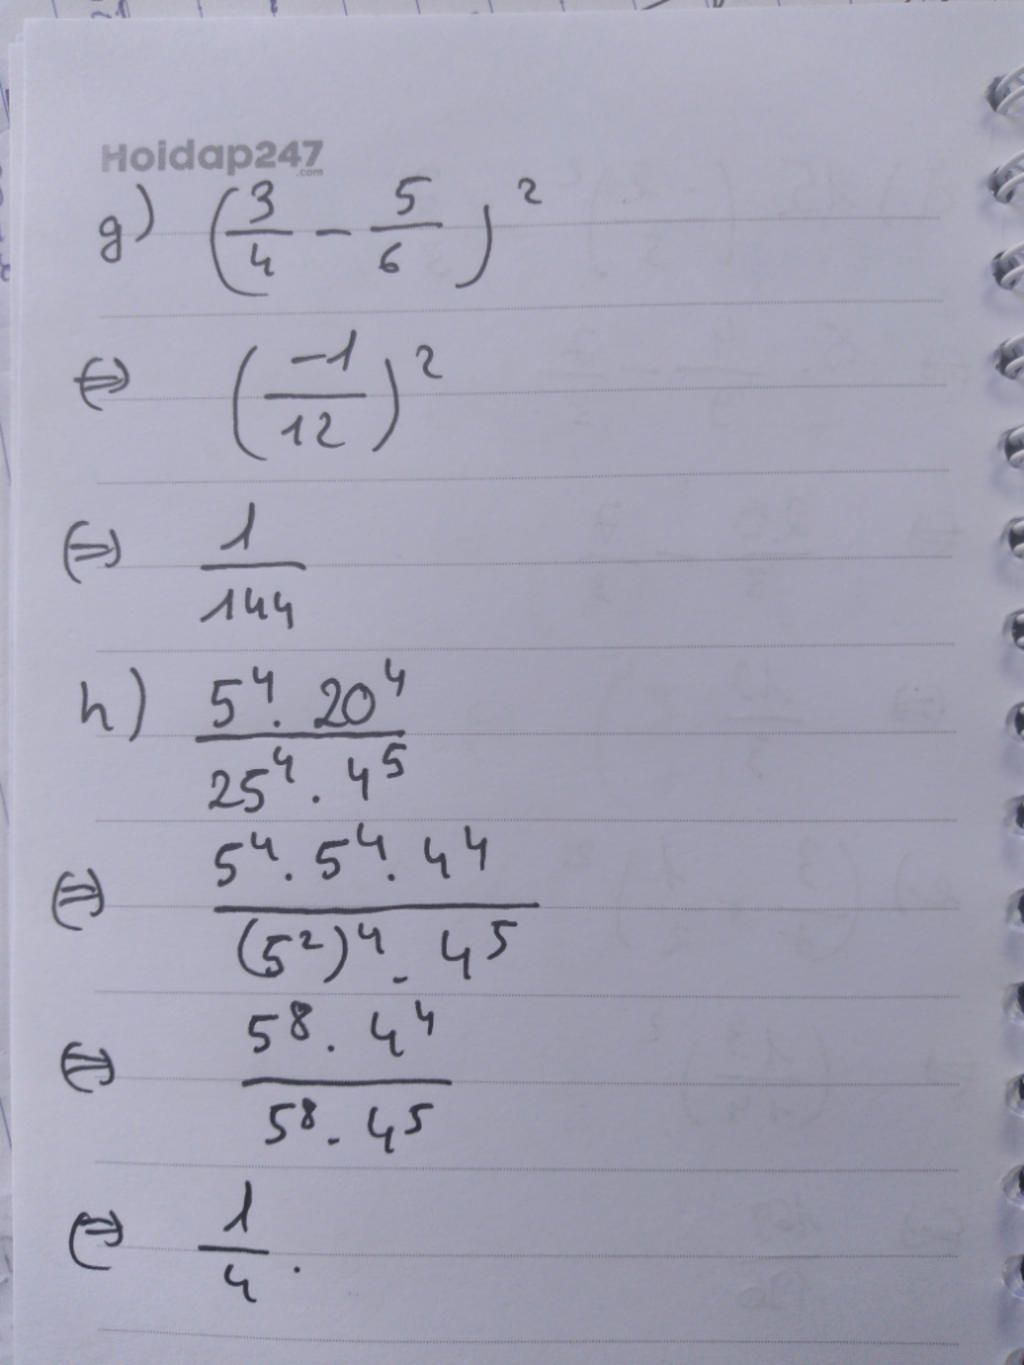 Hoidap247
.com
g) (3/4 - 5/6)²
⇔ (-1/12)²
⇔ 1/144
h) 5⁴. 20⁴ / 25⁴. 4⁵
⇔ 5⁴. 5⁴. 4⁴ / (5²)⁴. 4⁵
⇔ 5⁸. 4⁴ / 5⁸. 4⁵
⇔ 1/4.